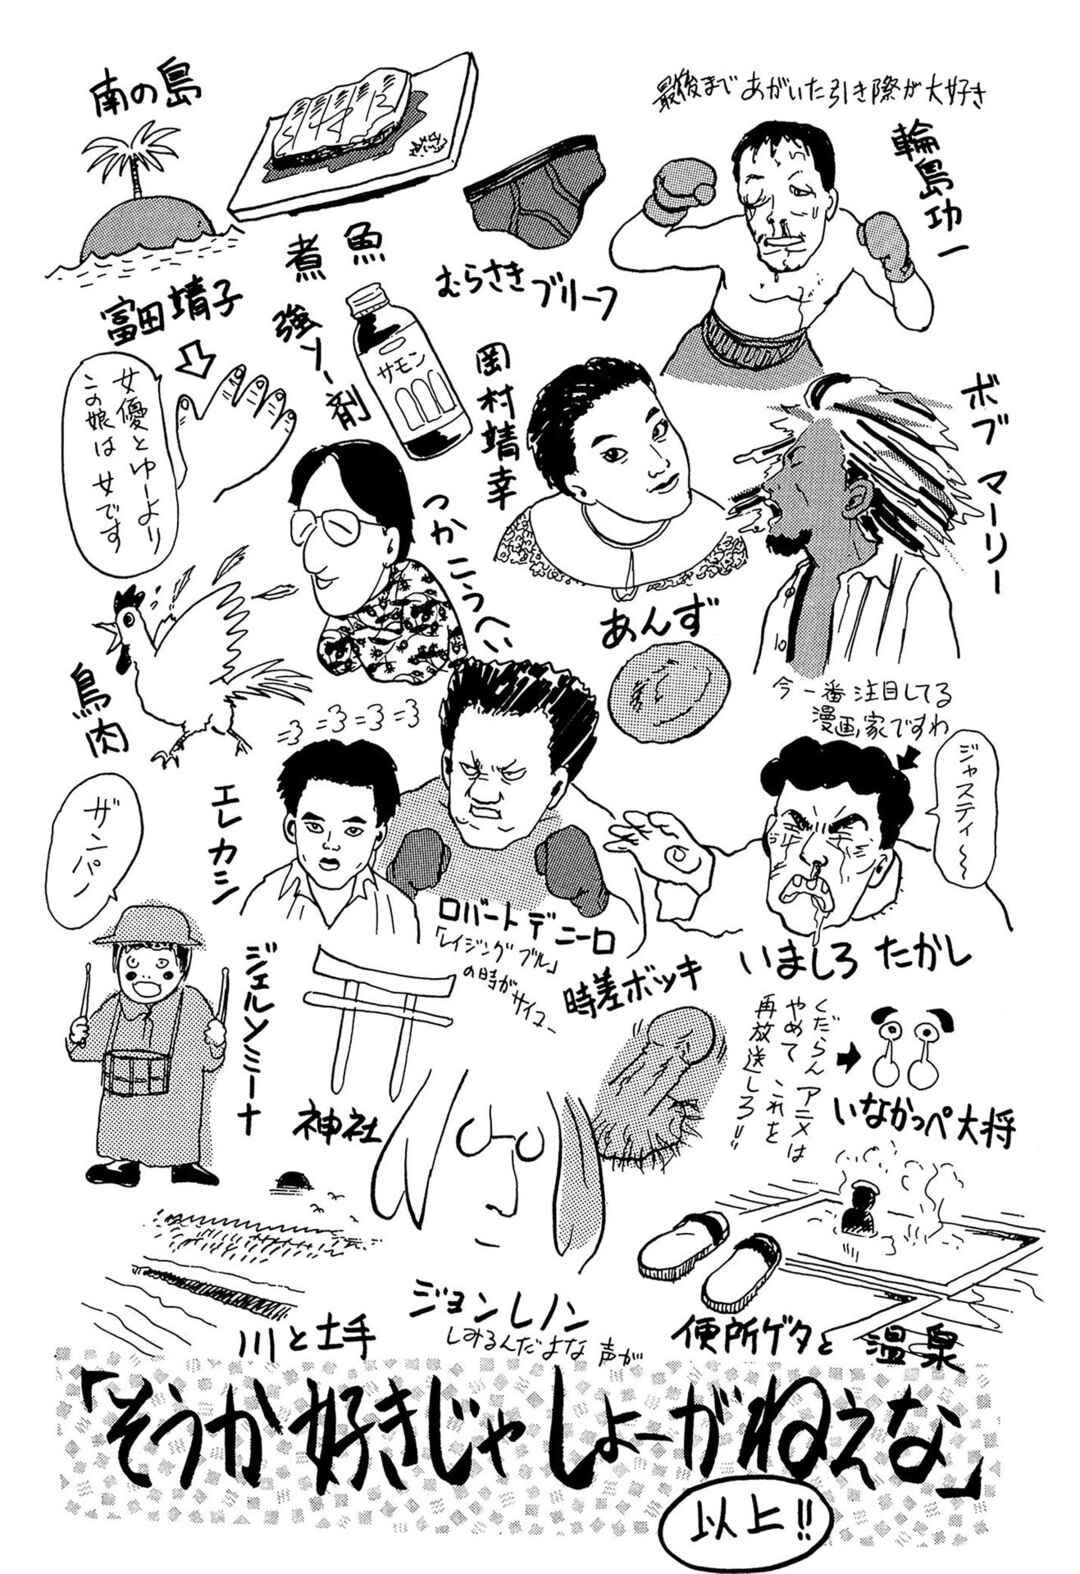 南の島
煮魚
むらさきブリーフ
最後まであがいた引き際が大好き
輪島功一
富田靖子
女優とゆーより
この娘は女です
強ソー剤
サモン
岡村靖幸
ボブ マーリー
つかこうへい
あんず
鳥肉
今一番注目してる
漫画家ですわ
ジャスティ〜
ザンパン
エレカシ
ロバートデニーロ
「レイジングブル」
の時がサイコー
いましろ たかし
ジェルソミーナ
神社
時差ボッキ
くだらん アニメは
やめて これを
再放送しろ!!
いなかっぺ大将
川と土手
ジョンレノン
しみるんだよな 声が
便所ゲタと 温泉
「そうか好きじゃしょーがねえな」
以上!!